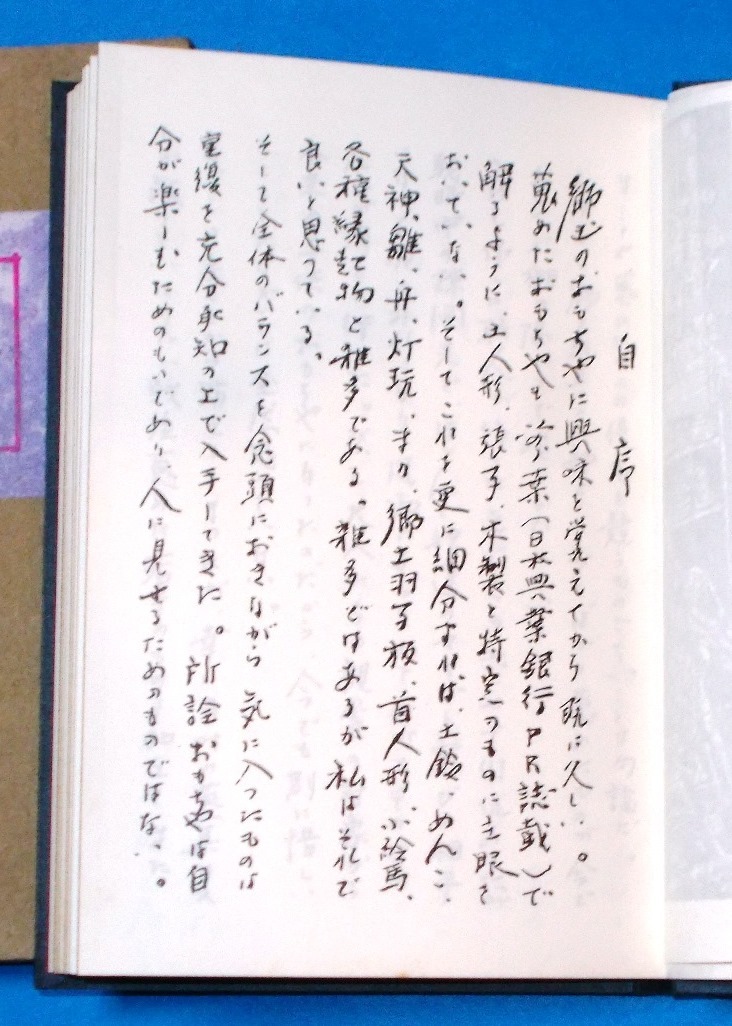 自序
郷土のおもちゃに興味を覚えてから既に久しい。
蒐めたおもちゃも 葉（日本興業銀行PR誌載）で
解るように、土人形、張子、木製と特定のものに主眼を
おいていない。そしてこれを更に細分すれば、土鈴、めんこ、
天神、雛、舟、灯玩、まり、郷土羽子板、首人形、小絵馬、
各種縁起物と雑多である。雑多ではあるが私はそれで
良いと思っている。
そして全体のバランスを念頭におきながら 気に入ったものは
重複を充分承知の上で入手してきた。所詮おもちゃは自
分が楽しむためのものであり、人に見せるためのものではない。